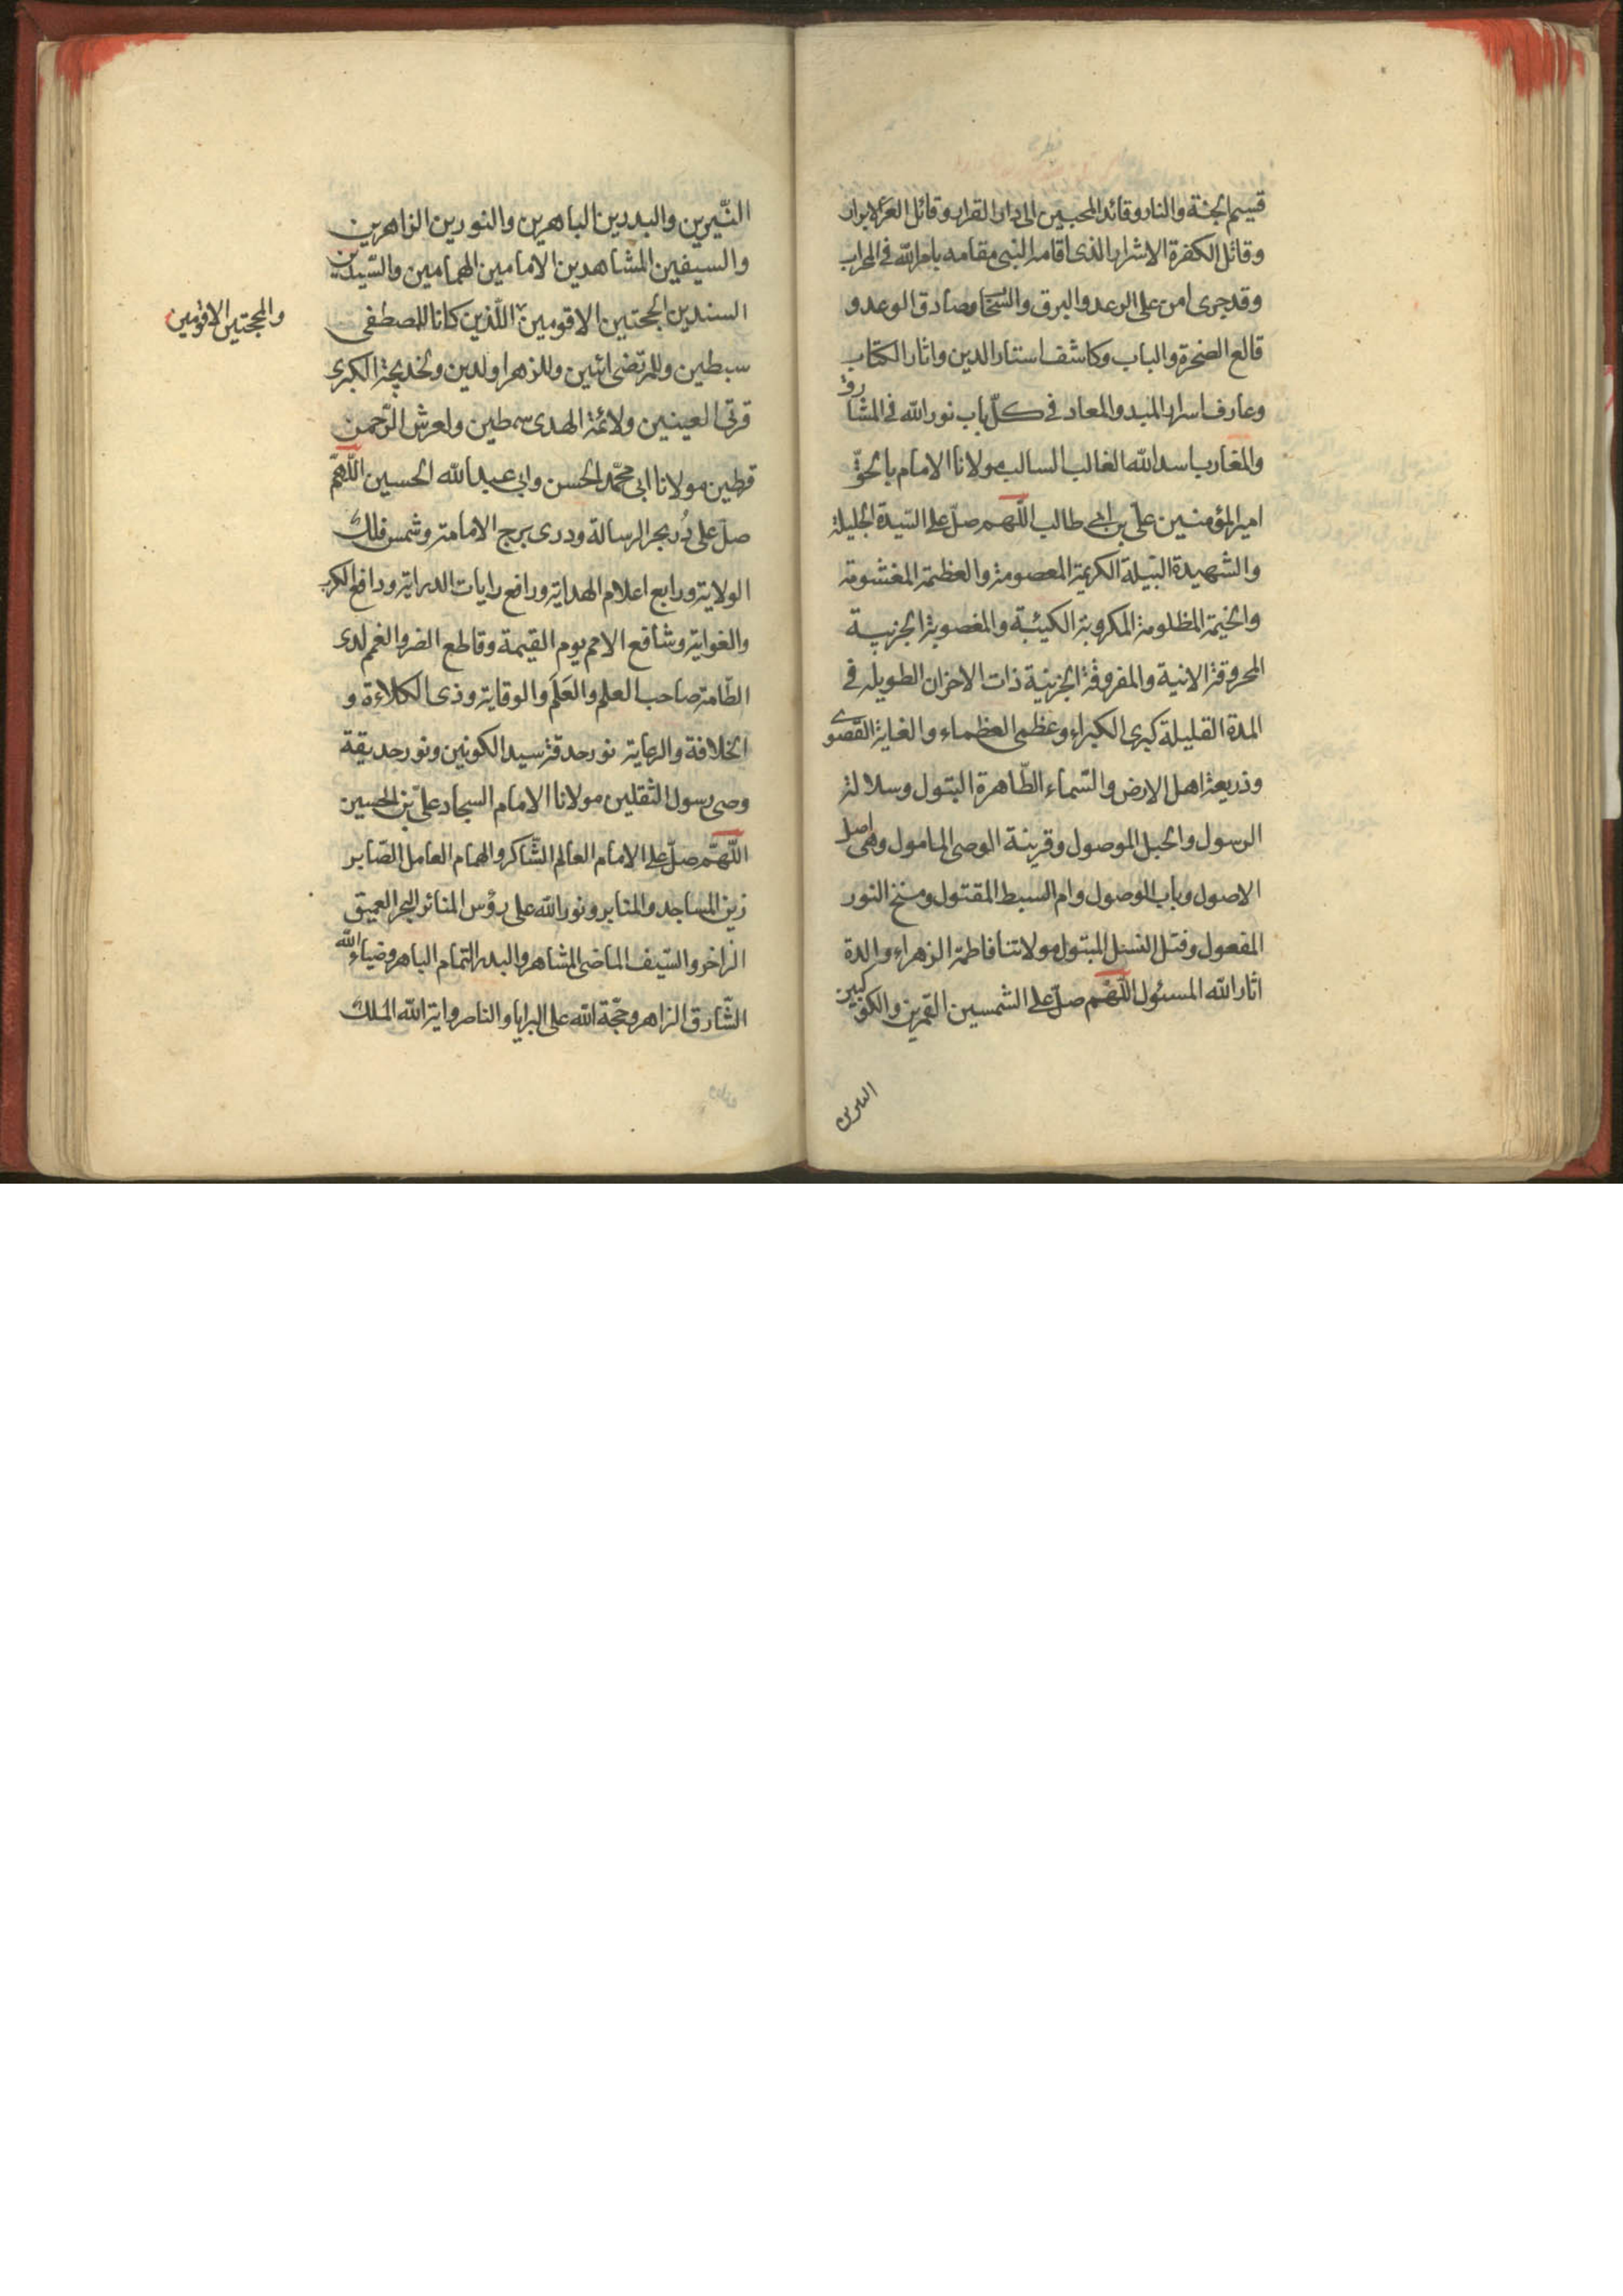 قسیم الجنة والنار وقائد المحبین الی دار القرار وقائل الغر الابرار
وقاتل الکفرة الاشرار الذی اقامه النبی مقامه بامر الله فی المحراب
وقد جری امره علی الرعد والبرق والسحاب وصادق الوعد و
قالع الصخرة والباب وکاشف استار الدین واثار الکتاب
وعارف اسرار المبدء والمعاد فی کل باب نور الله فی المشارق
والمغارب اسد الله الغالب السالب مولانا الامام بالحق
امیر المؤمنین علی بن ابی طالب اللهم صل علی السیدة الجلیلة
والشهیدة النبیلة الکریمة المعصومة والعظیمة المغشومة
والخیمة المظلومة المکروبة الکئیبة والمغصوبة الحزیبة
المحروقة الانیة والمفروقة الحزینة ذات الاحزان الطویله فی
المدة القلیلة کبری الکبراء وعظمی العظماء والغایة القصوی
وذریعة اهل الارض والسماء الطاهرة البتول وسلالة
الرسول والحبل الموصول وقرینة الوصی المامول وهی اصل
الاصول وباب الوصول وام السبط المقتول ومنخ النور
المفعول وفتل النسل المبتول مولاتنا فاطمة الزهراء والدة
اثار الله المسئول اللهم صل علی الشمسین القمرین والکوکبین
النیرین
النیّرین والبدرین الباهرین والنورین الزاهرین
والسیفین المشاهدین الامامین الهمامین والسیدین
السندین الحجتین الاقومین اللذین کانا للمصطفی
والمحجتین الاقومین
سبطین وللمرتضی اثنین وللزهرا ولدین ولخدیجة الکبری
قرتی العینین ولائمة الهدی سمطین ولعرش الرحمن
قرطین مولانا ابی محمد الحسن وابی عبد الله الحسین اللهم
صل علی دُر بحر الرسالة ودری برج الامامة وشمس فلک
الولایة ورابع اعلام الهدایة ورافع رایات الدرایة ودافع الکرب
والغوایة وشافع الامم یوم القیمة وقاطع الضر والغم لدی
الطامة صاحب العلم والعَلَم والوقایة وذی الکلاءة و
الخلافة والرعایة نور حدقة سید الکونین ونور حدیقة
وصی رسول الثقلین مولانا الامام السجاد علی بن الحسین
اللهم صل علی الامام العالم الشاکر والهمام العامل الصابر
زین المساجد والمنابر ونور الله علی رؤس المنائر البحر العمیق
الزاخر والسیف الماضی المشاهر والبدر التمام الباهر وضیاء الله
الشارق الزاهر وحجة الله علی البرایا والناصر وایة الله الملک